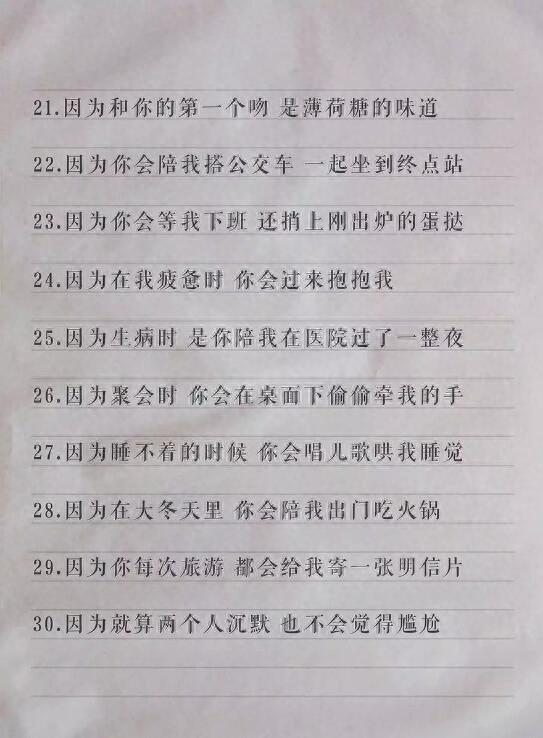 21.因为和你的第一个吻 是薄荷糖的味道
22.因为你会陪我搭公交车 一起坐到终点站
23.因为你会等我下班 还捎上刚出炉的蛋挞
24.因为在我疲惫时 你会过来抱抱我
25.因为生病时 是你陪我在医院过了一整夜
26.因为聚会时 你会在桌面下偷偷牵我的手
27.因为睡不着的时候 你会唱儿歌哄我睡觉
28.因为在大冬天里 你会陪我出门吃火锅
29.因为你每次旅游 都会给我寄一张明信片
30.因为就算两个人沉默 也不会觉得尴尬